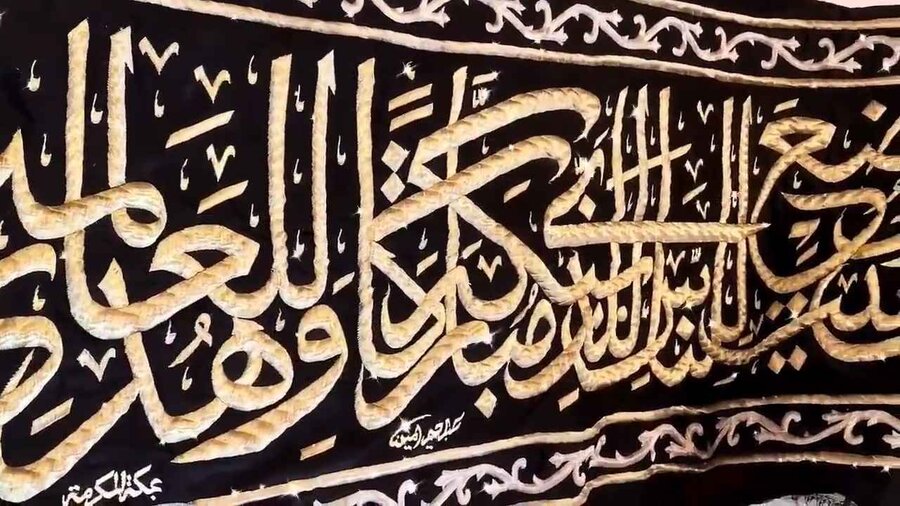 بيت وضع للناس للذي ببكة مباركا وهدى للعالمين
عبدالرحيم أمين
بمكة المكرمة